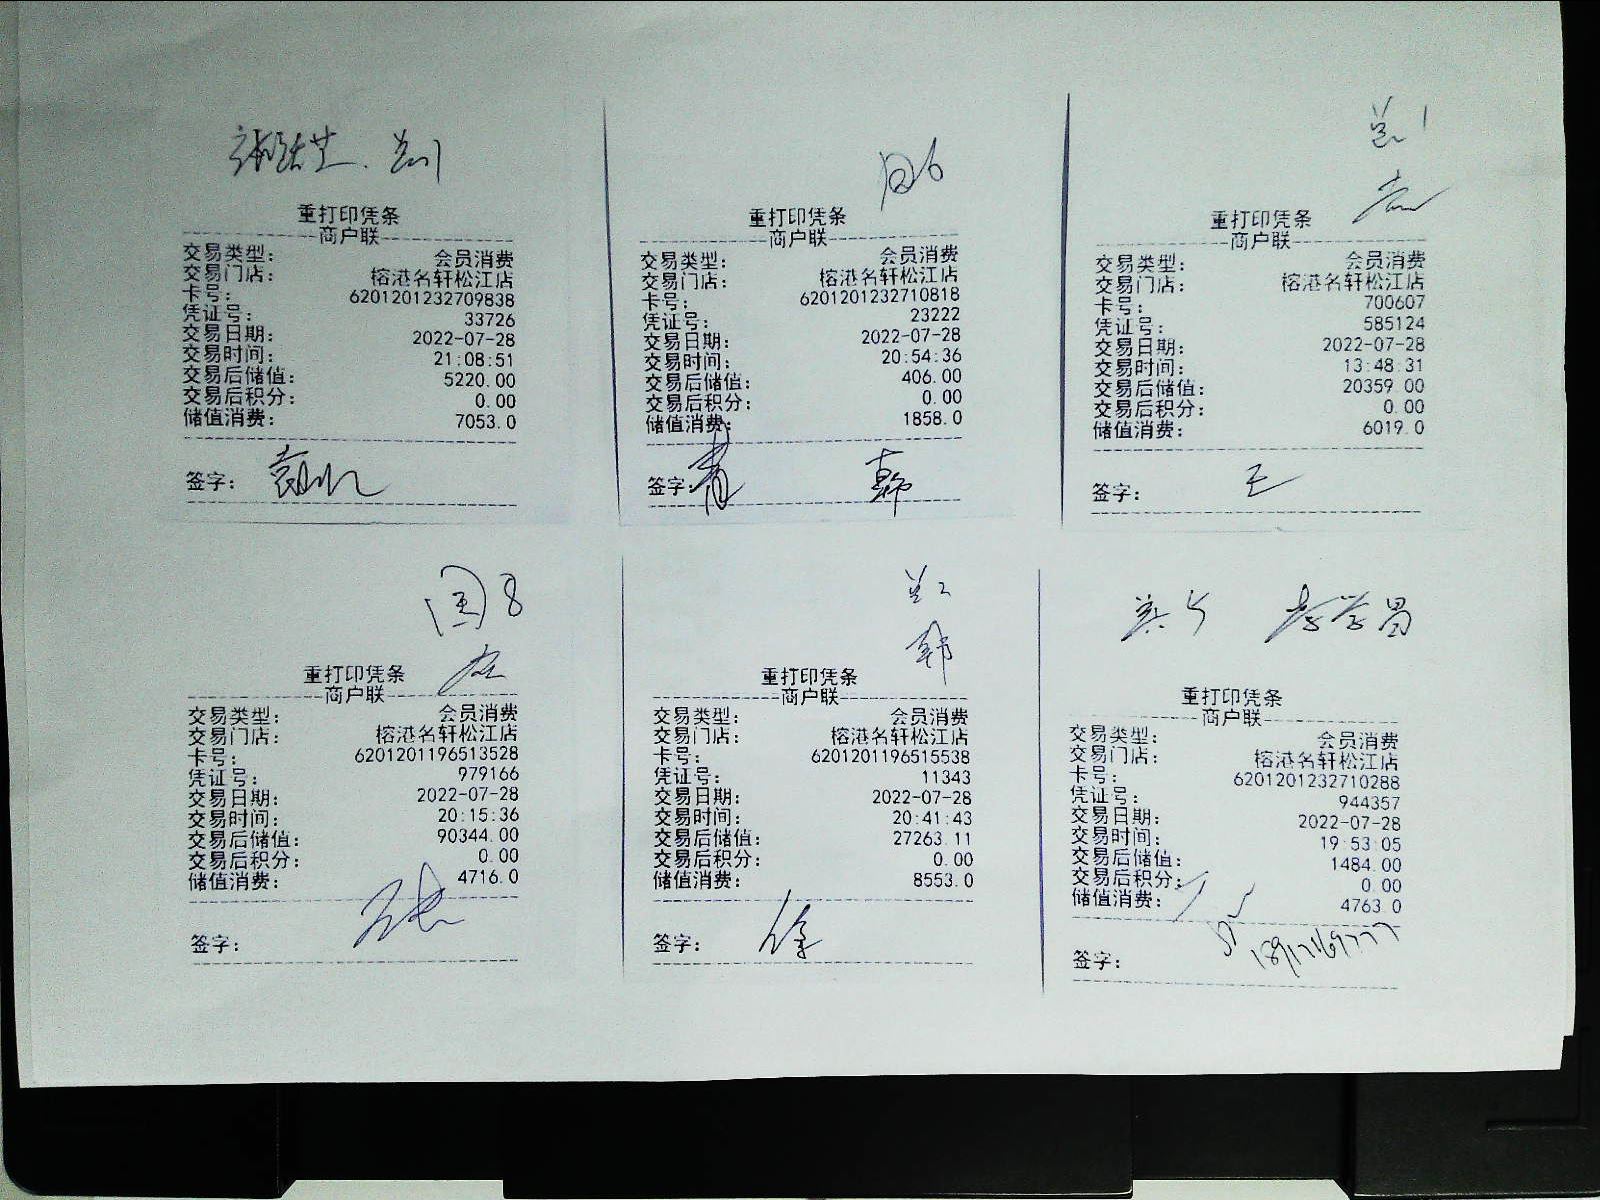 重打印凭条
商户联
交易类型： 会员消费
交易门店： 榕港名轩松江店
卡号： 6201201232709838
凭证号： 33726
交易日期： 2022-07-28
交易时间： 21:08:51
交易后储值： 5220.00
交易后积分： 0.00
储值消费： 7053.0
签字：
重打印凭条
商户联
交易类型： 会员消费
交易门店： 榕港名轩松江店
卡号： 6201201232710818
凭证号： 23222
交易日期： 2022-07-28
交易时间： 20:54:36
交易后储值： 406.00
交易后积分： 0.00
储值消费： 1858.0
签字： 韩
重打印凭条
商户联
交易类型： 会员消费
交易门店： 榕港名轩松江店
卡号： 700607
凭证号： 585124
交易日期： 2022-07-28
交易时间： 13:48:31
交易后储值： 20359.00
交易后积分： 0.00
储值消费： 6019.0
签字： 王
国8
重打印凭条
商户联
交易类型： 会员消费
交易门店： 榕港名轩松江店
卡号： 6201201196513528
凭证号： 979166
交易日期： 2022-07-28
交易时间： 20:15:36
交易后储值： 90344.00
交易后积分： 0.00
储值消费： 4716.0
签字：
兰2
韩
重打印凭条
商户联
交易类型： 会员消费
交易门店： 榕港名轩松江店
卡号： 6201201196515538
凭证号： 11343
交易日期： 2022-07-28
交易时间： 20:41:43
交易后储值： 27263.11
交易后积分： 0.00
储值消费： 8553.0
签字：
李学昌
重打印凭条
商户联
交易类型： 会员消费
交易门店： 榕港名轩松江店
卡号： 6201201232710288
凭证号： 944357
交易日期： 2022-07-28
交易时间： 19:53:05
交易后储值： 1484.00
交易后积分： 0.00
储值消费： 4763.0
签字： 18917169777